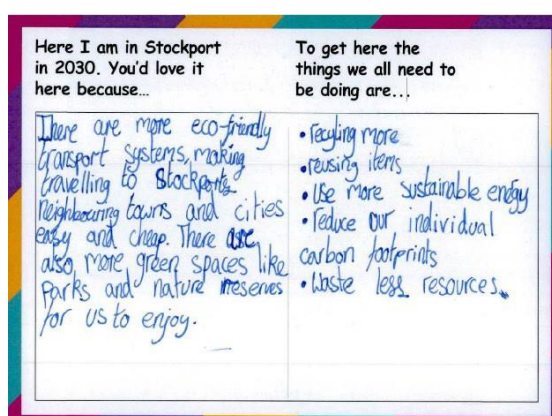 Here I am in Stockport
in 2030. You'd love it
here because...
There are more eo-friendly
transport systems, making
travelling to Stockports
neighbouring towns and cities
easy and cheap. There are
also more green spaces like
Parks and nature reserves
for us to enjoy.
To get here the
things we all need to
be doing are...
• recyling more
• reusing items
• Use more sustainable energy
• reduce our individual
carbon footprints
• Waste less resources.